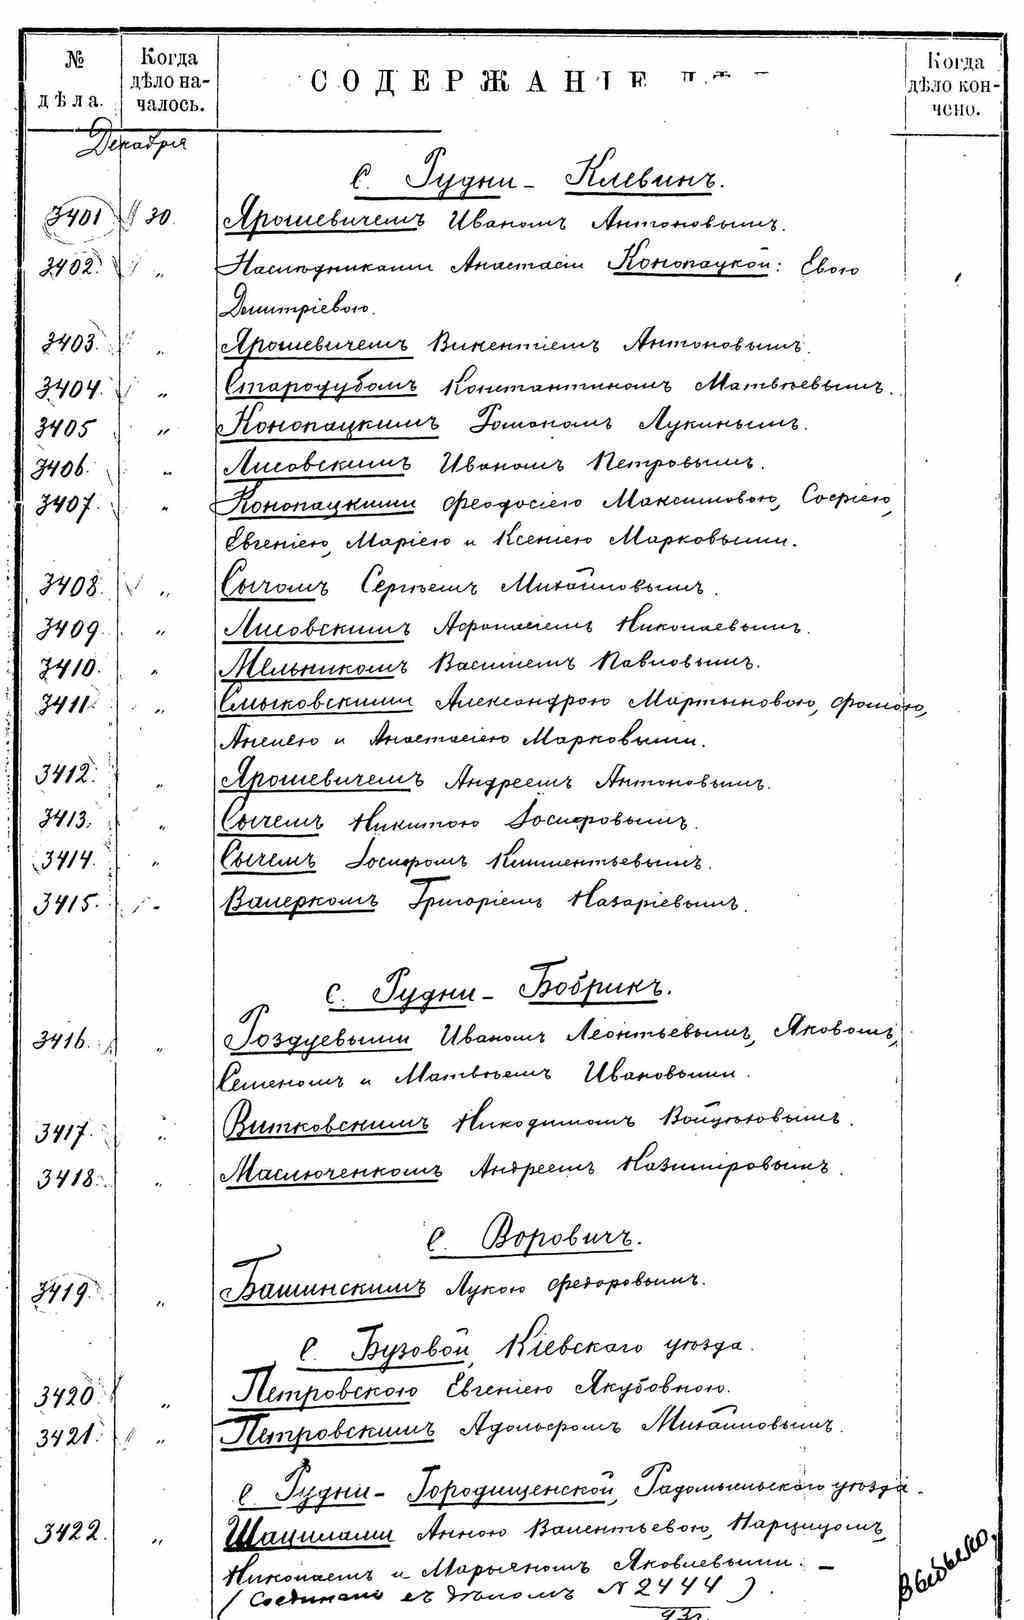 № дѣла.
Когда дѣло началось.
СОДЕРЖАНІЕ
Когда дѣло кончено.
Декабря
с. Рудни - Клевинъ.
3401 30. Ярошевичемъ Иваномъ Антоновымъ.
3402. " Наслѣдниками Анастасіи Конопацкой: Евою
Дмитріевою.
3403. " Ярошевичемъ Викентіемъ Антоновымъ.
3404. " Стародубомъ Константиномъ Матвѣевымъ.
3405 " Конопацкимъ Романомъ Лукинымъ.
3406. " Лисовскимъ Иваномъ Петровымъ.
3407. " Конопацкими Феодосіею Максимовою, Софіею,
Евгеніею, Маріею и Ксеніею Марковыми.
3408. " Сычомъ Сергѣемъ Михайловымъ.
3409. " Лисовскимъ Афанасіемъ Николаевымъ.
3410. " Мельникомъ Василіемъ Павловымъ.
3411. " Смыковскими Александрою Мартыновою, Фомою,
и Анастасіею Марковыми.
3412. " Ярошевичемъ Андреемъ Антоновымъ.
3413. " Сычемъ Никитою Іосифовымъ.
3414. " Сычемъ Іосифомъ Климентьевымъ.
3415. " Валеркомъ Григоріемъ Назаріевымъ.
с. Рудни - Бобрикъ.
3416. " Роздуевыми Иваномъ Леонтьевымъ, Яковомъ,
Семеномъ и Матвѣемъ Ивановыми.
3417. " Витковскимъ Никодимомъ Войцѣховымъ.
3418. " Маслюченкомъ Андреемъ Казиміровымъ.
с. Воровичъ.
3419. " Башинскимъ Лукою Федоровымъ.
с. Бузовой, Кіевскаго уѣзда.
3420. " Петровскою Евгеніею Якубовною.
3421. " Петровскимъ Адольфомъ Михайловымъ.
с. Рудни - Городищенской, Радомысльскаго уѣзда.
3422. " Шацилами Анною Валентьевою, Нарцизомъ,
Николаемъ и Марьяномъ Яковлевыми. -
(Соединено съ дѣломъ N 2444/93г.).
Выбыло.